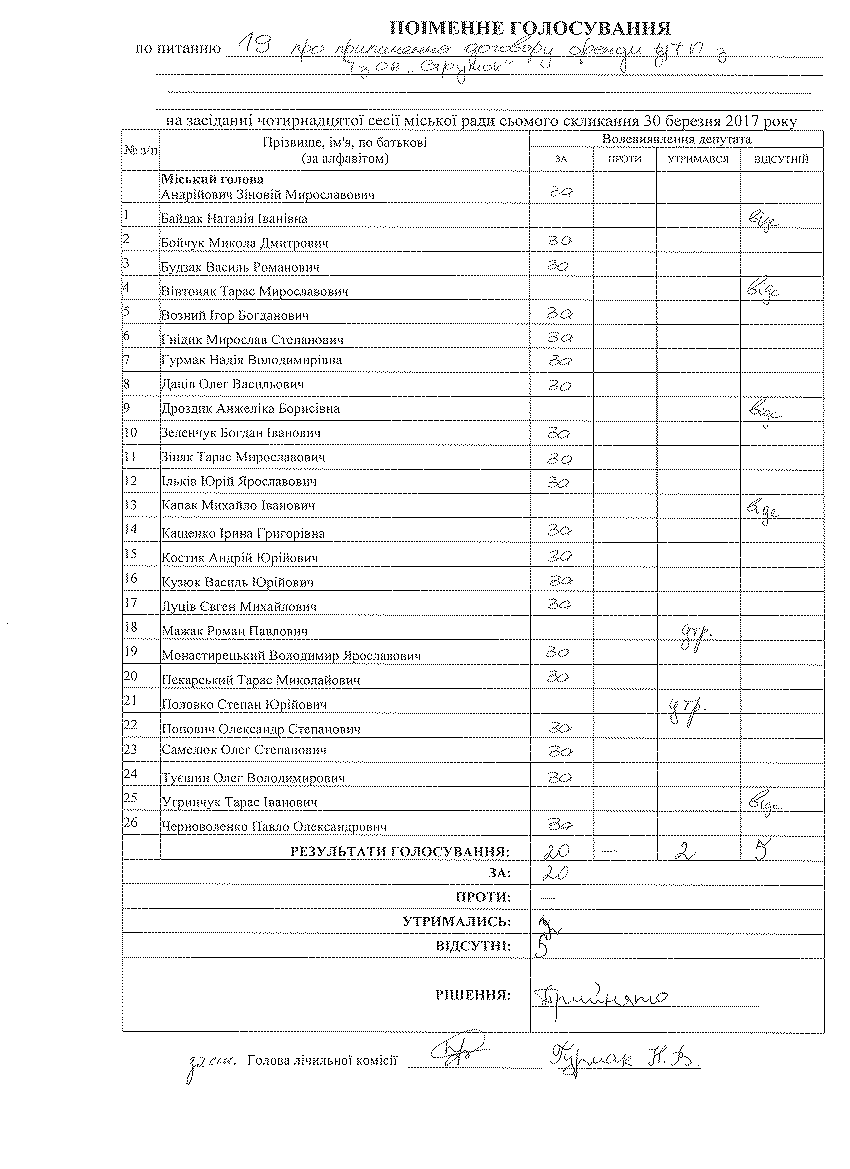 ПОІМЕННЕ ГОЛОСУВАННЯ
по питанню 19 про припинення договору оренди з
ТзОВ „Стружок"
на засіданні чотирнадцятої сесії міської ради сьомого скликання 30 березня 2017 року
№ з/п Прізвище, ім'я, по батькові (за алфавітом) Волевиявлення депутата
ЗА ПРОТИ УТРИМАВСЯ ВІДСУТНІЙ
Міський голова
Андрійович Зіновій Мирославович за
1 Байдак Наталія Іванівна відс
2 Бойчук Микола Дмитрович за
3 Будзак Василь Романович за
4 Вівтоняк Тарас Мирославович відс
5 Возний Ігор Богданович за
6 Гнідик Мирослав Степанович за
7 Гурмак Надія Володимирівна за
8 Даців Олег Васильович за
9 Дроздик Анжеліка Борисівна відс
10 Зеленчук Богдан Іванович за
11 Зіняк Тарас Мирославович за
12 Ільків Юрій Ярославович за
13 Капак Михайло Іванович відс
14 Кащенко Ірина Григорівна за
15 Костик Андрій Юрійович за
16 Кузюк Василь Юрійович за
17 Луців Євген Михайлович за
18 Мажак Роман Павлович утр.
19 Монастирецький Володимир Ярославович за
20 Пекарський Тарас Миколайович за
21 Половко Степан Юрійович утр.
22 Попович Олександр Степанович за
23 Самелюк Олег Степанович за
24 Туєшин Олег Володимирович за
25 Угринчук Тарас Іванович відс
26 Черноволенко Павло Олександрович за
РЕЗУЛЬТАТИ ГОЛОСУВАННЯ: 20 — 2 5
ЗА: 20
ПРОТИ: —
УТРИМАЛИСЬ: 2
ВІДСУТНІ: 5
РІШЕННЯ: Прийнято
Голова лічильної комісії Гурмак Н. В.